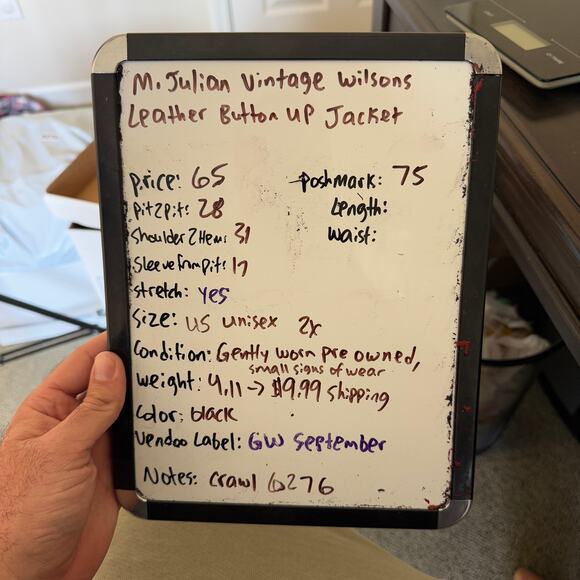 M. Julian Vintage Wilsons
Leather Button Up Jacket
price: 65
poshmark: 75
pit2pit: 28
Length:
Shoulder2Hem: 31
Waist:
Sleevefrompit: 17
stretch: yes
Size: US unisex 2x
Condition: Gently worn pre owned,
small signs of wear
weight: 4.11 -> $9.99 shipping
Color: black
Vendoo Label: GW September
Notes: crawl 6276